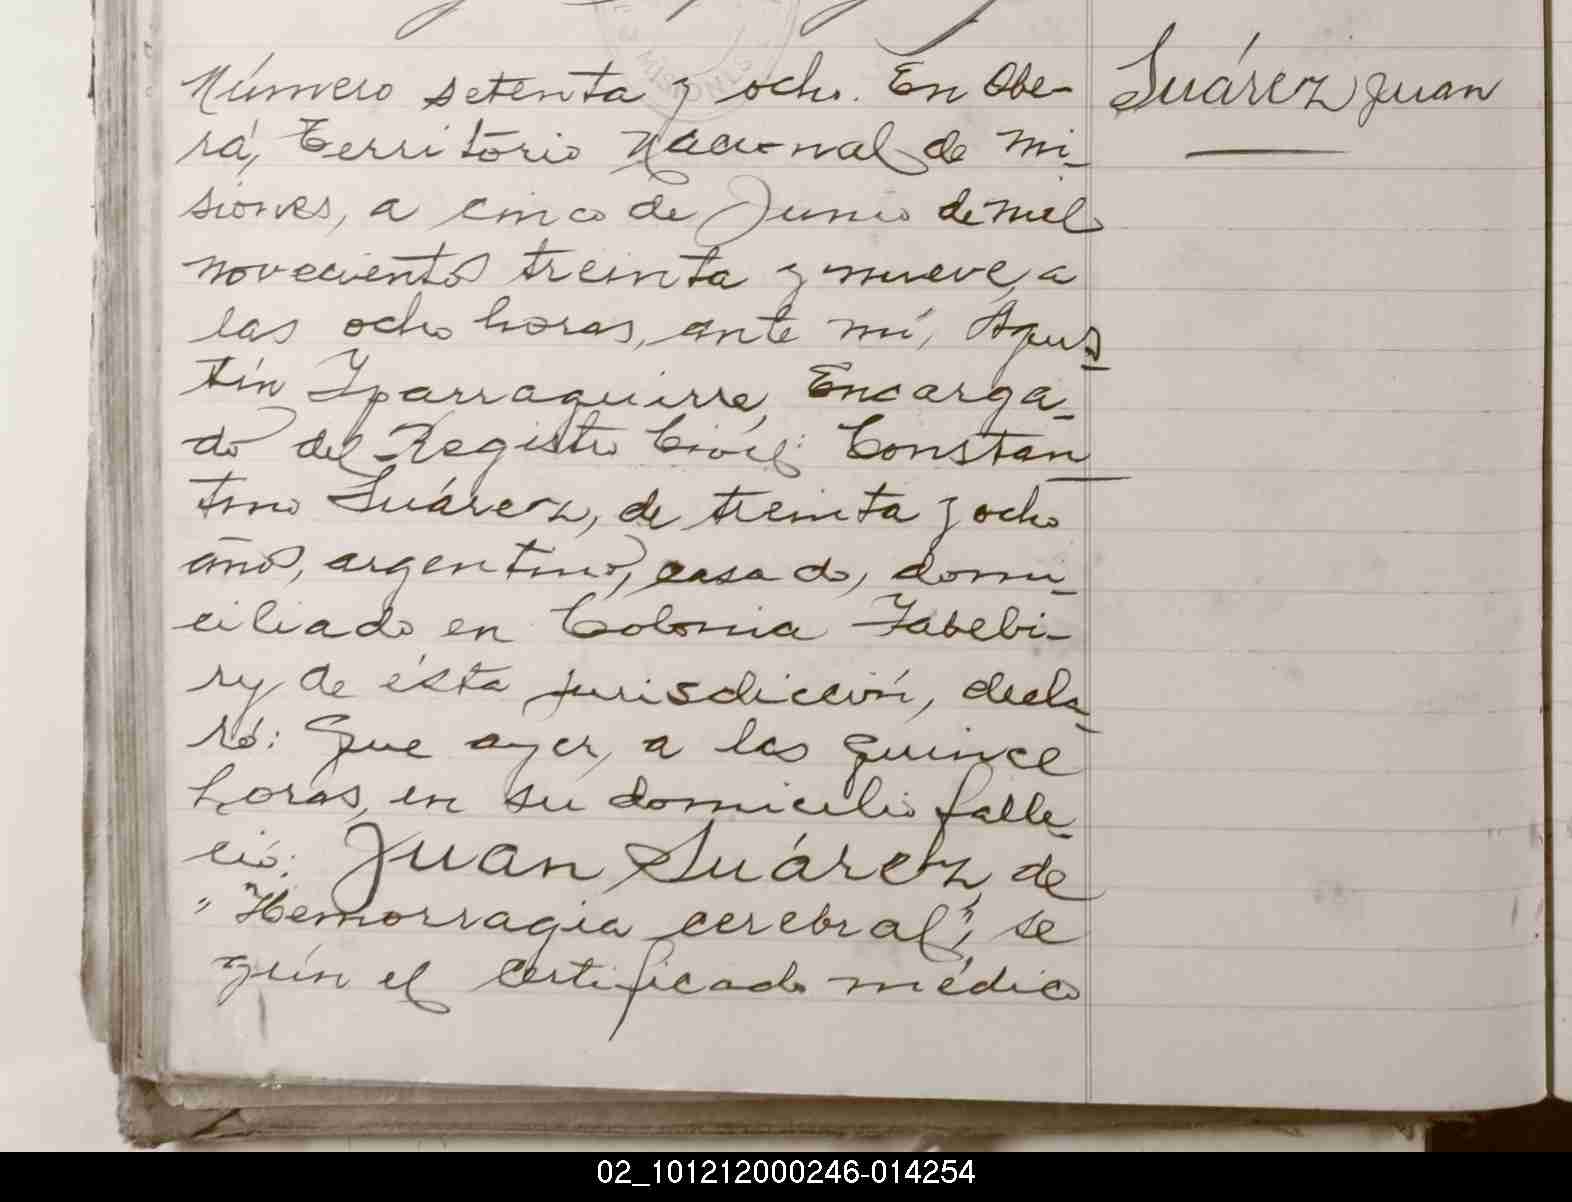 Número setenta y ocho. En Obe-
rá, Territorio Nacional de Mi-
siones, a cinco de Junio de mil
novecientos treinta y nueve, a
las ocho horas, ante mí, Agus-
tín Yparraguirre, Encarga-
do del Registro Civil: Constan
tino Suárez, de treinta y ocho
años, argentino, casado, domi-
ciliado en Colonia Yabebi-
ry, de ésta jurisdicción, decla-
ró: Que ayer, a las quince
horas, en su domicilio falle-
ció: Juan Suárez, de
"Hemorragia cerebral", se
gún el certificado médico
Suárez Juan
02_101212000246-014254